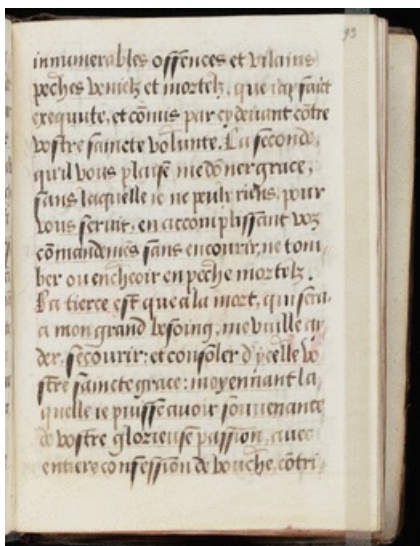 93
innumerables offences et vilains
peches venielz et mortelz, que iay faict
exequute, et cõmis par cy devant cõtre
vostre saincte volunte. La seconde,
quil vous plaise me dõner grace,
sans laquelle ie ne puis riens, pour
vous servir, en accomplissant voz
cõmandemẽs sans encourir, ne tom-
ber ou encheoir en peche mortelz.
La tierce est que a la mort, qui sera
a mon grand besoing, me vuille ay
der, secourir: et consoler d'ycelle vo
stre saincte grace: moyennant la,
quelle ie puisse avoir souvenance
de vostre glorieuse passion, avec
entiere confession de bouche, cõtri,